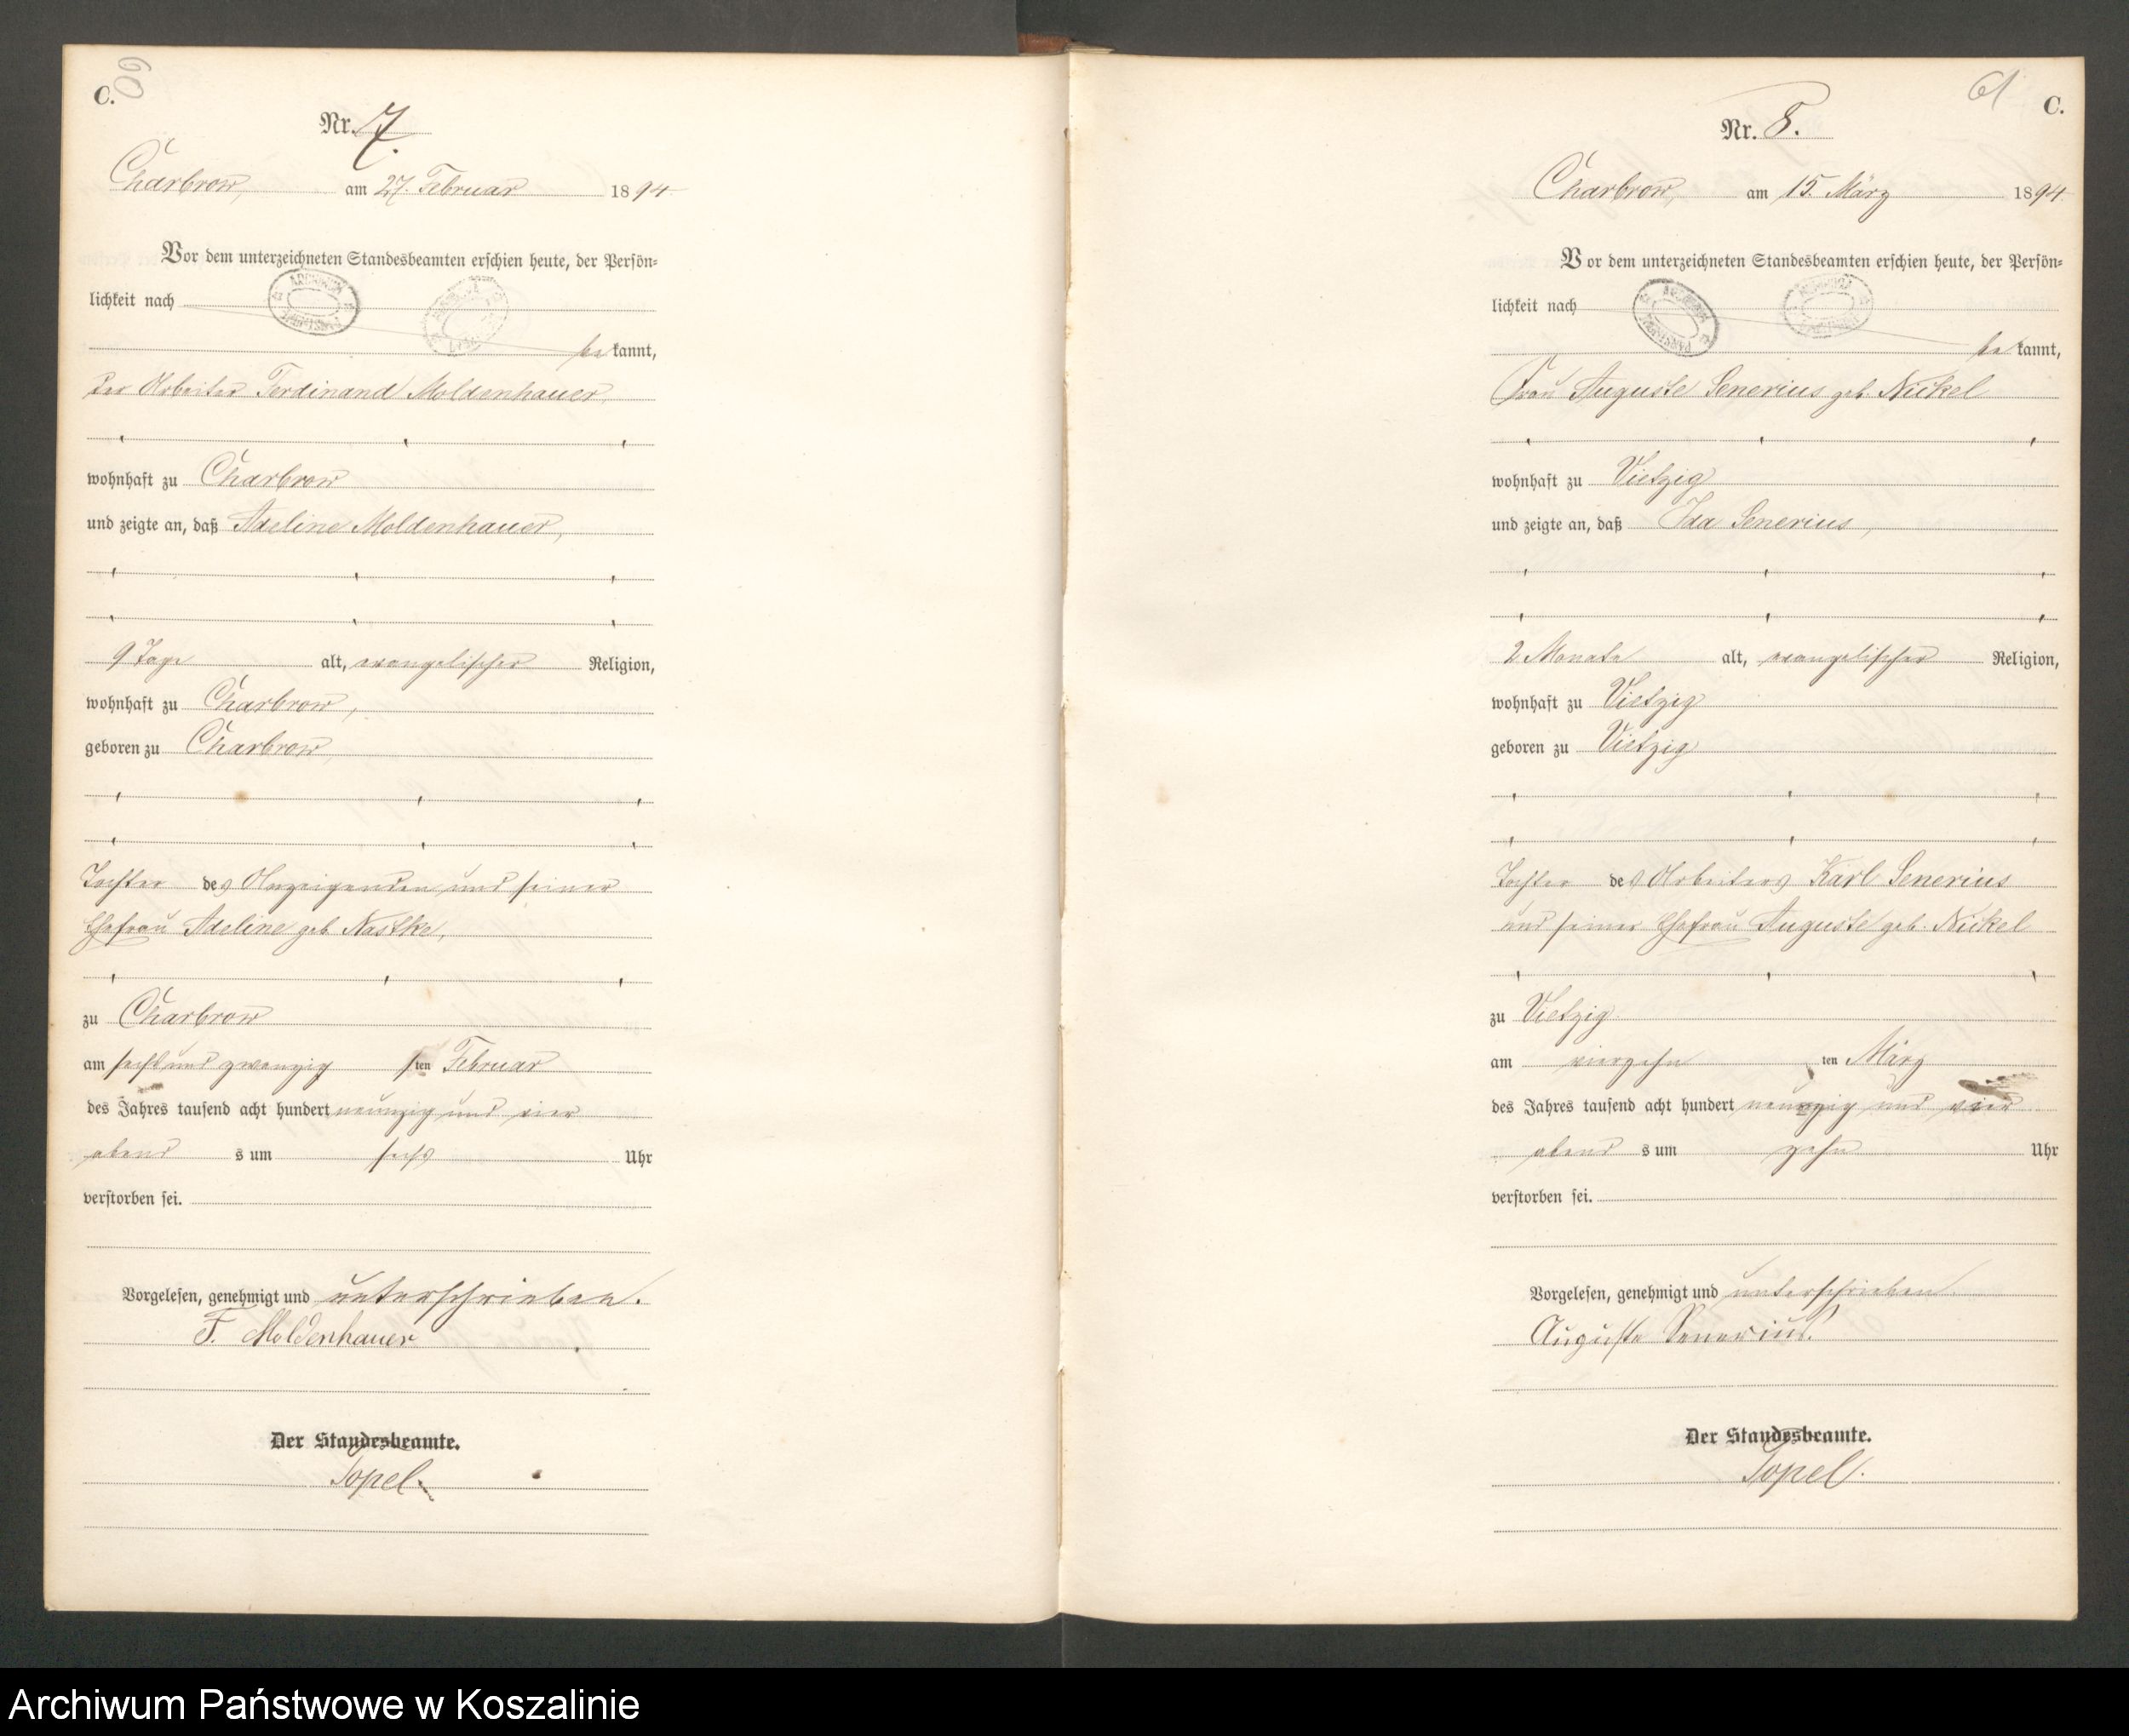 C.
60
Nr. 7.
Charbrow, am 27. Februar 1894
Vor dem unterzeichneten Standesbeamten erschien heute, der Persön-
lichkeit nach
bekannt,
der Arbeiter Ferdinand Moldenhauer,
wohnhaft zu Charbrow
und zeigte an, daß Adeline Moldenhauer,
9 Tage alt, evangelischer Religion,
wohnhaft zu Charbrow,
geboren zu Charbrow
Tochter des Anzeigenden und seiner
Ehefrau Adeline geb. Nastke,
zu Charbrow
am sechsundzwanzigsten Februar
des Jahres tausend acht hundert neunzig und vier
abends um sechs Uhr
verstorben sei.
Vorgelesen, genehmigt und unterschrieben.
F. Moldenhauer
Der Standesbeamte.
Topel.
61
C.
Nr. 8.
Charbrow, am 15. März 1894
Vor dem unterzeichneten Standesbeamten erschien heute, der Persön-
lichkeit nach
bekannt,
Frau Auguste Senerius geb. Nickel
wohnhaft zu Vietzig
und zeigte an, daß Ida Senerius,
2 Monate alt, evangelischer Religion,
wohnhaft zu Vietzig
geboren zu Vietzig
Tochter des Arbeiters Karl Senerius
und seiner Ehefrau Auguste geb. Nickel
zu Vietzig
am vierzehnten März
des Jahres tausend acht hundert neunzig und vier
abends um zehn Uhr
verstorben sei.
Vorgelesen, genehmigt und unterschrieben.
Auguste Senerius.
Der Standesbeamte.
Topel.
Archiwum Państwowe w Koszalinie